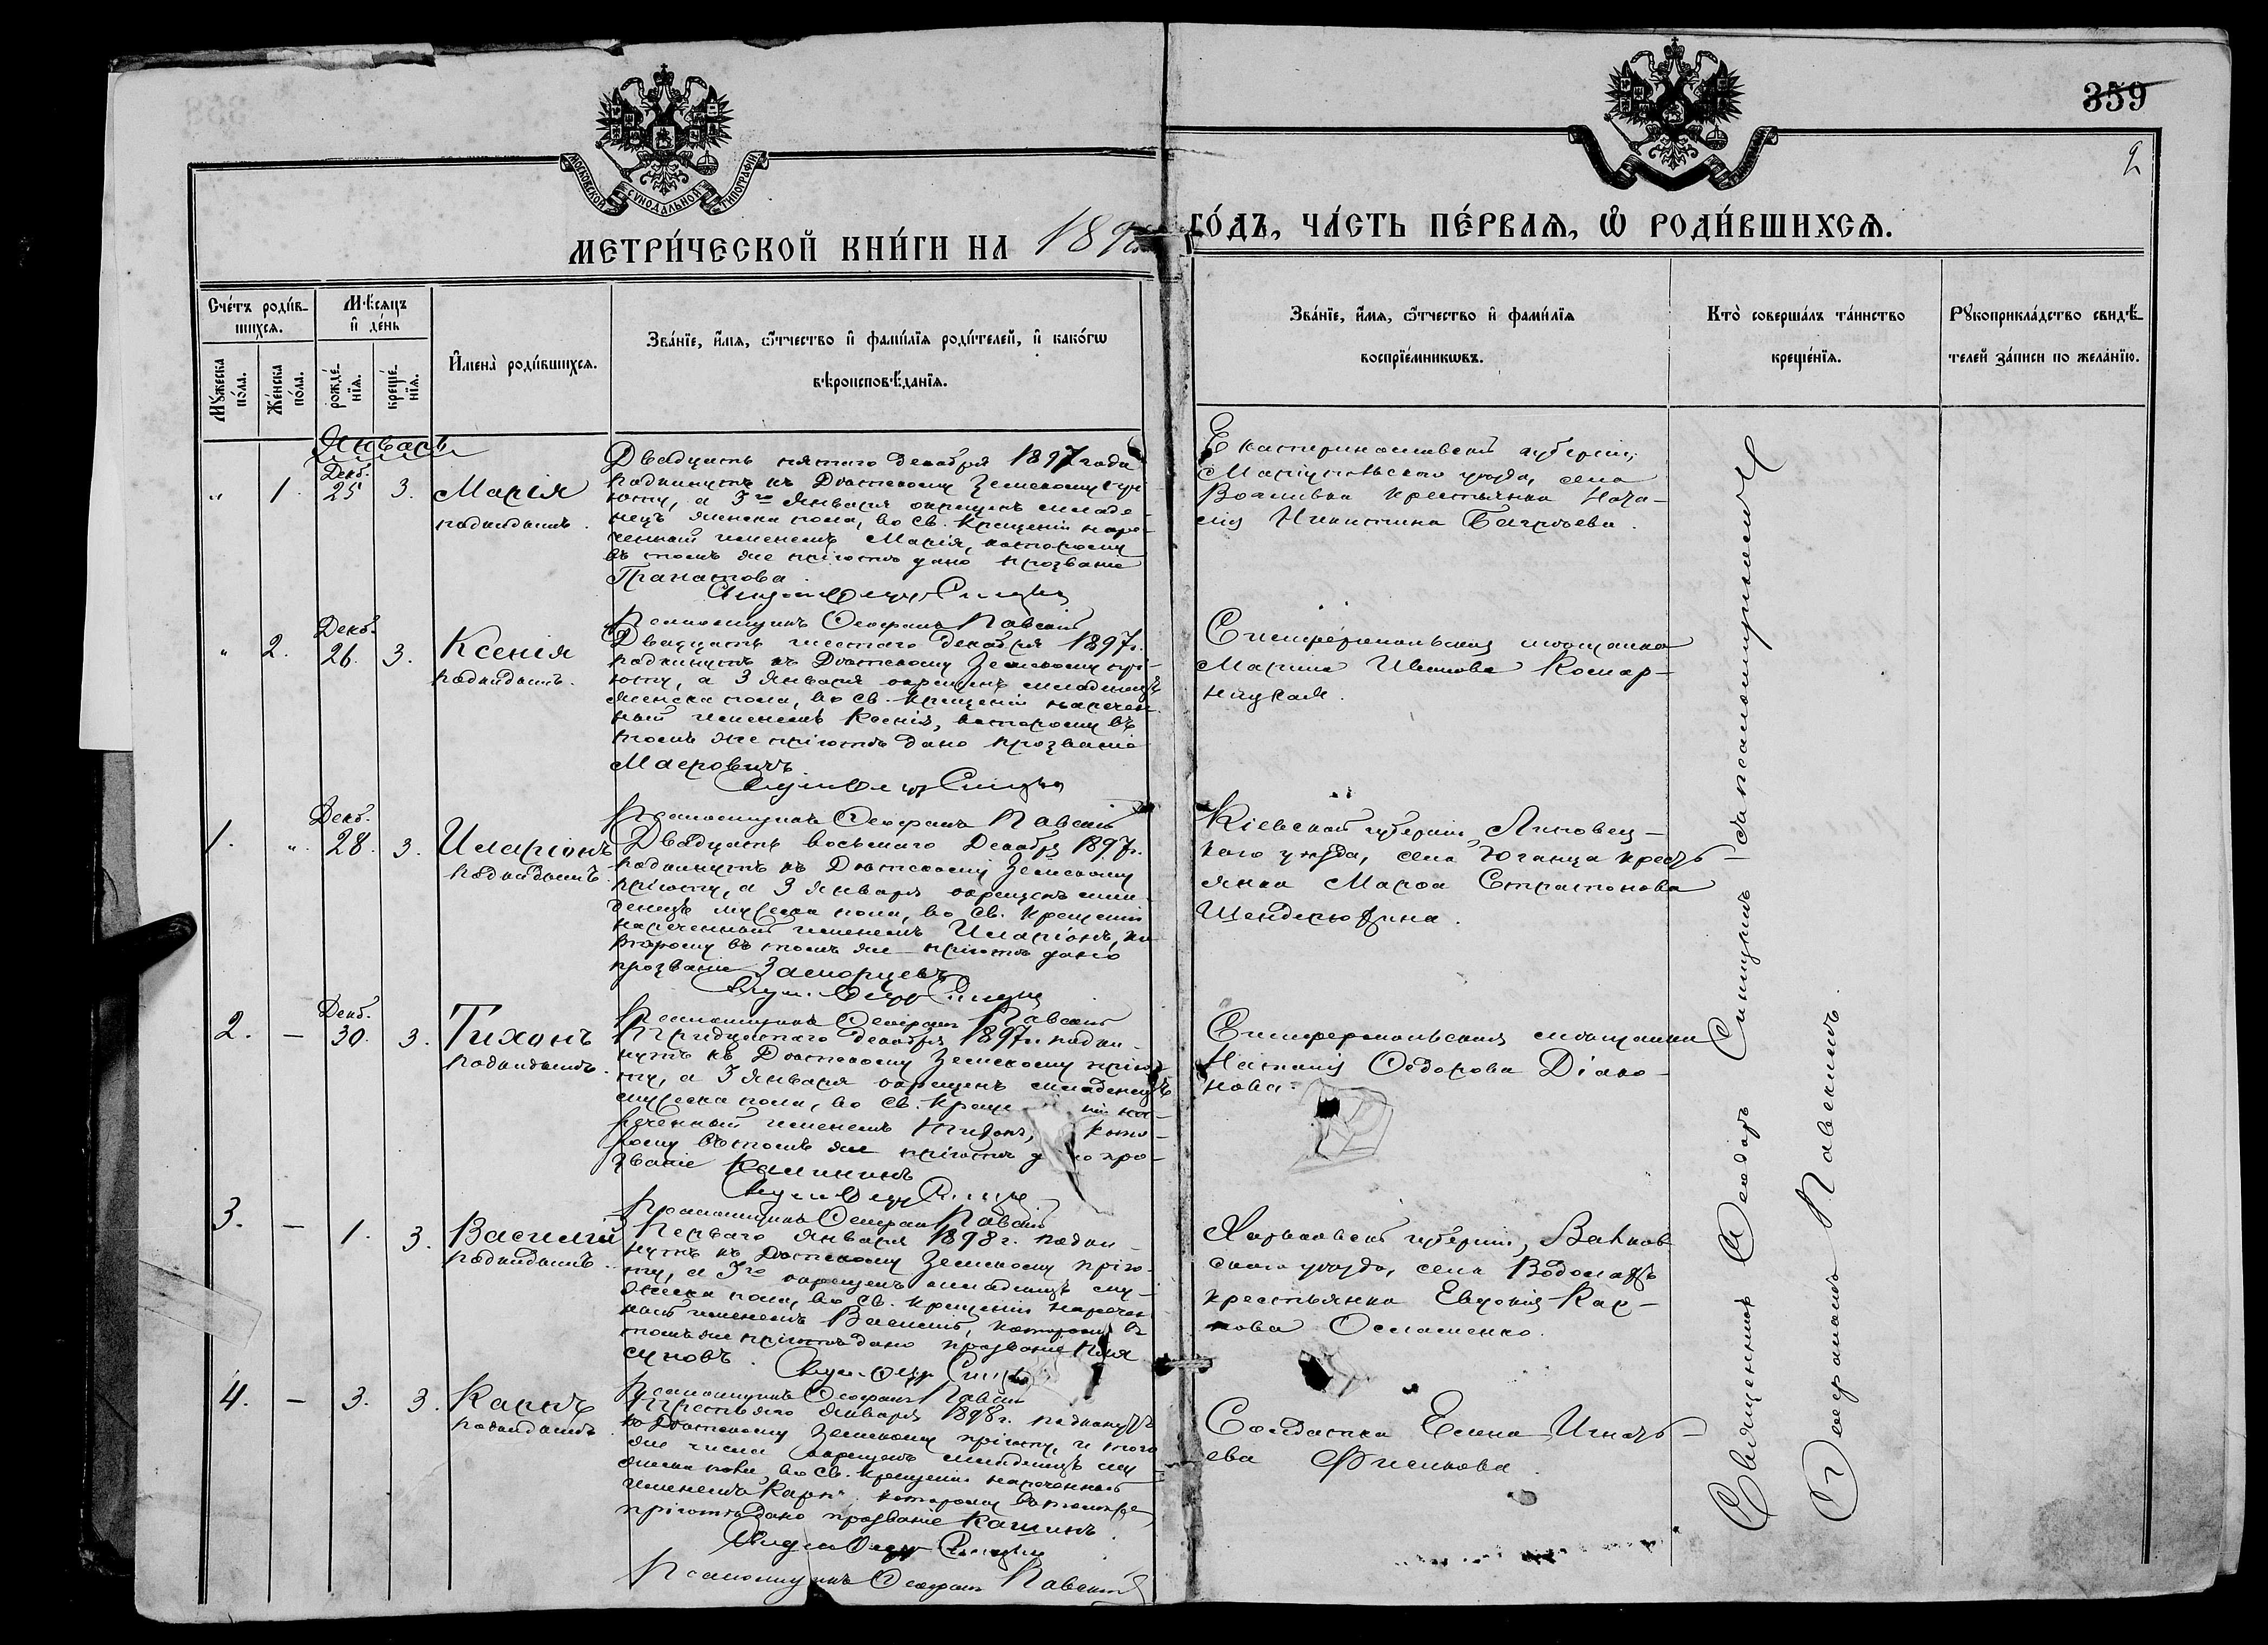 359
2
МОСКОВСКОЙ СѴНОДАЛЬНОЙ ТИПОГРАФІИ
МЕТРИ́ЧЕСКОЙ КНИ́ГИ НА 189
ГО́ДЪ, ЧА́СТЬ ПЕ́РВАѦ, Ѡ҆ РОДИ́ВШИХСѦ.
Сче́тъ роди́в-
шихсѧ.
Мꙋ́жеска
по́ла.
Же́нска
по́ла.
Мѣ́сѧцъ
и҆ де́нь
рожде́-
нїѧ.
креще́-
нїѧ.
И҆мена̀ роди́вшихсѧ.
Зва́нїе, и҆́мѧ, ѻ҆́тчество и҆ фами́лїѧ роди́телей, и҆ како́гѡ
вѣроисповѣ́данїѧ.
Зва́нїе, и҆́мѧ, ѻ҆́тчество и҆ фами́лїѧ
воспрїе́мникѡвъ.
Кто̀ соверша́лъ та́инство
креще́нїѧ.
Рꙋкоприкла́дство свидѣ́-
телей за́писи по жела́нїю.
Январь
" 1. Декб. 25 3. Марія
подкидышъ.
Двадцать пятаго декабря 1897 года
подкинутъ къ Дѣтскому Земскому прі-
юту, а 3го Января окрещенъ младе-
нецъ женска пола, во св. Крещеніи наре-
ченный именемъ Марія, которому
въ томъ же пріютѣ дано прозваніе
Гранатова.
Псаломщикъ Ѳеофанъ Павскій
Екатеринославской губерніи,
Маріупольскаго уѣзда, села
крестьянка
Никитина
" 2. Декб. 26. 3. Ксенія
подкидышъ.
Двадцать шестаго декабря 1897 г.
подкинутъ къ Дѣтскому Земскому прі-
юту, а 3 Января окрещенъ младенецъ
женска пола, во св. Крещеніи наречен-
ный именемъ Ксенія, которому въ
томъ же пріютѣ дано прозваніе
Псаломщикъ Ѳеофанъ Павскій
Симферопольская мѣщанка
Марина Иванова Комар-
ницкая.
1. " Декб. 28. 3. Иларіонъ
подкидышъ.
Двадцать восьмаго Декабря 1897 г.
подкинутъ къ Дѣтскому Земскому
пріюту, а 3 Января окрещенъ мла-
денецъ мужеска пола, во св. Крещеніи
нареченный именемъ Иларіонъ, ко-
торому въ томъ же пріютѣ дано
прозваніе Заморцевъ
Псаломщикъ Ѳеофанъ Павскій
Кіевской губерніи, Липовец-
каго уѣзда, села Юганца кресть-
янка Марѳа Стратонова
2. — Декб. 30. 3. Тихонъ
подкидышъ.
Тридцатаго декабря 1897 г. подки-
нутъ къ Дѣтскому Земскому прію-
ту, а 3 Января окрещенъ младенецъ
мужеска пола, во св. Креще ніи на-
реченный именемъ Тихонъ, кото-
рому въ томъ же пріютѣ д но про-
званіе Калининъ
Псаломщикъ Ѳеофанъ Павскій
Симферопольская мѣщанка
Наталія Ѳедорова Діако-
нова.
3. — 1. 3. Василій
подкидышъ.
Перваго Января 1898 г. подки-
нутъ къ Дѣтскому Земскому прію-
ту, а 3го окрещенъ младенецъ му-
жеска пола, во св. Крещеніи наречен-
ный именемъ Василій, которому въ
томъ же пріютѣ дано прозваніе
Псаломщикъ Ѳеофанъ Павскій
Харьковской губерніи, Валков-
скаго уѣзда, села
крестьянка Евдокія Кар-
пова Осташенко.
4. — 3. 3. Карпъ
подкидышъ.
Третьяго Января 1898 г. подкинутъ
къ Дѣтскому Земскому пріюту, и того
же числа окрещенъ младенецъ му-
жеска пола, во св. Крещеніи нареченный
именемъ Карпъ, которому въ томъ же
пріютѣ дано прозваніе Кашинъ.
Псаломщикъ Ѳеофанъ Павскій
Солдатка Елена Игнать-
ева Филикова.
Священникъ Ѳеодоръ Синицынъ съ псаломщикомъ
Ѳеофаномъ Павскимъ.